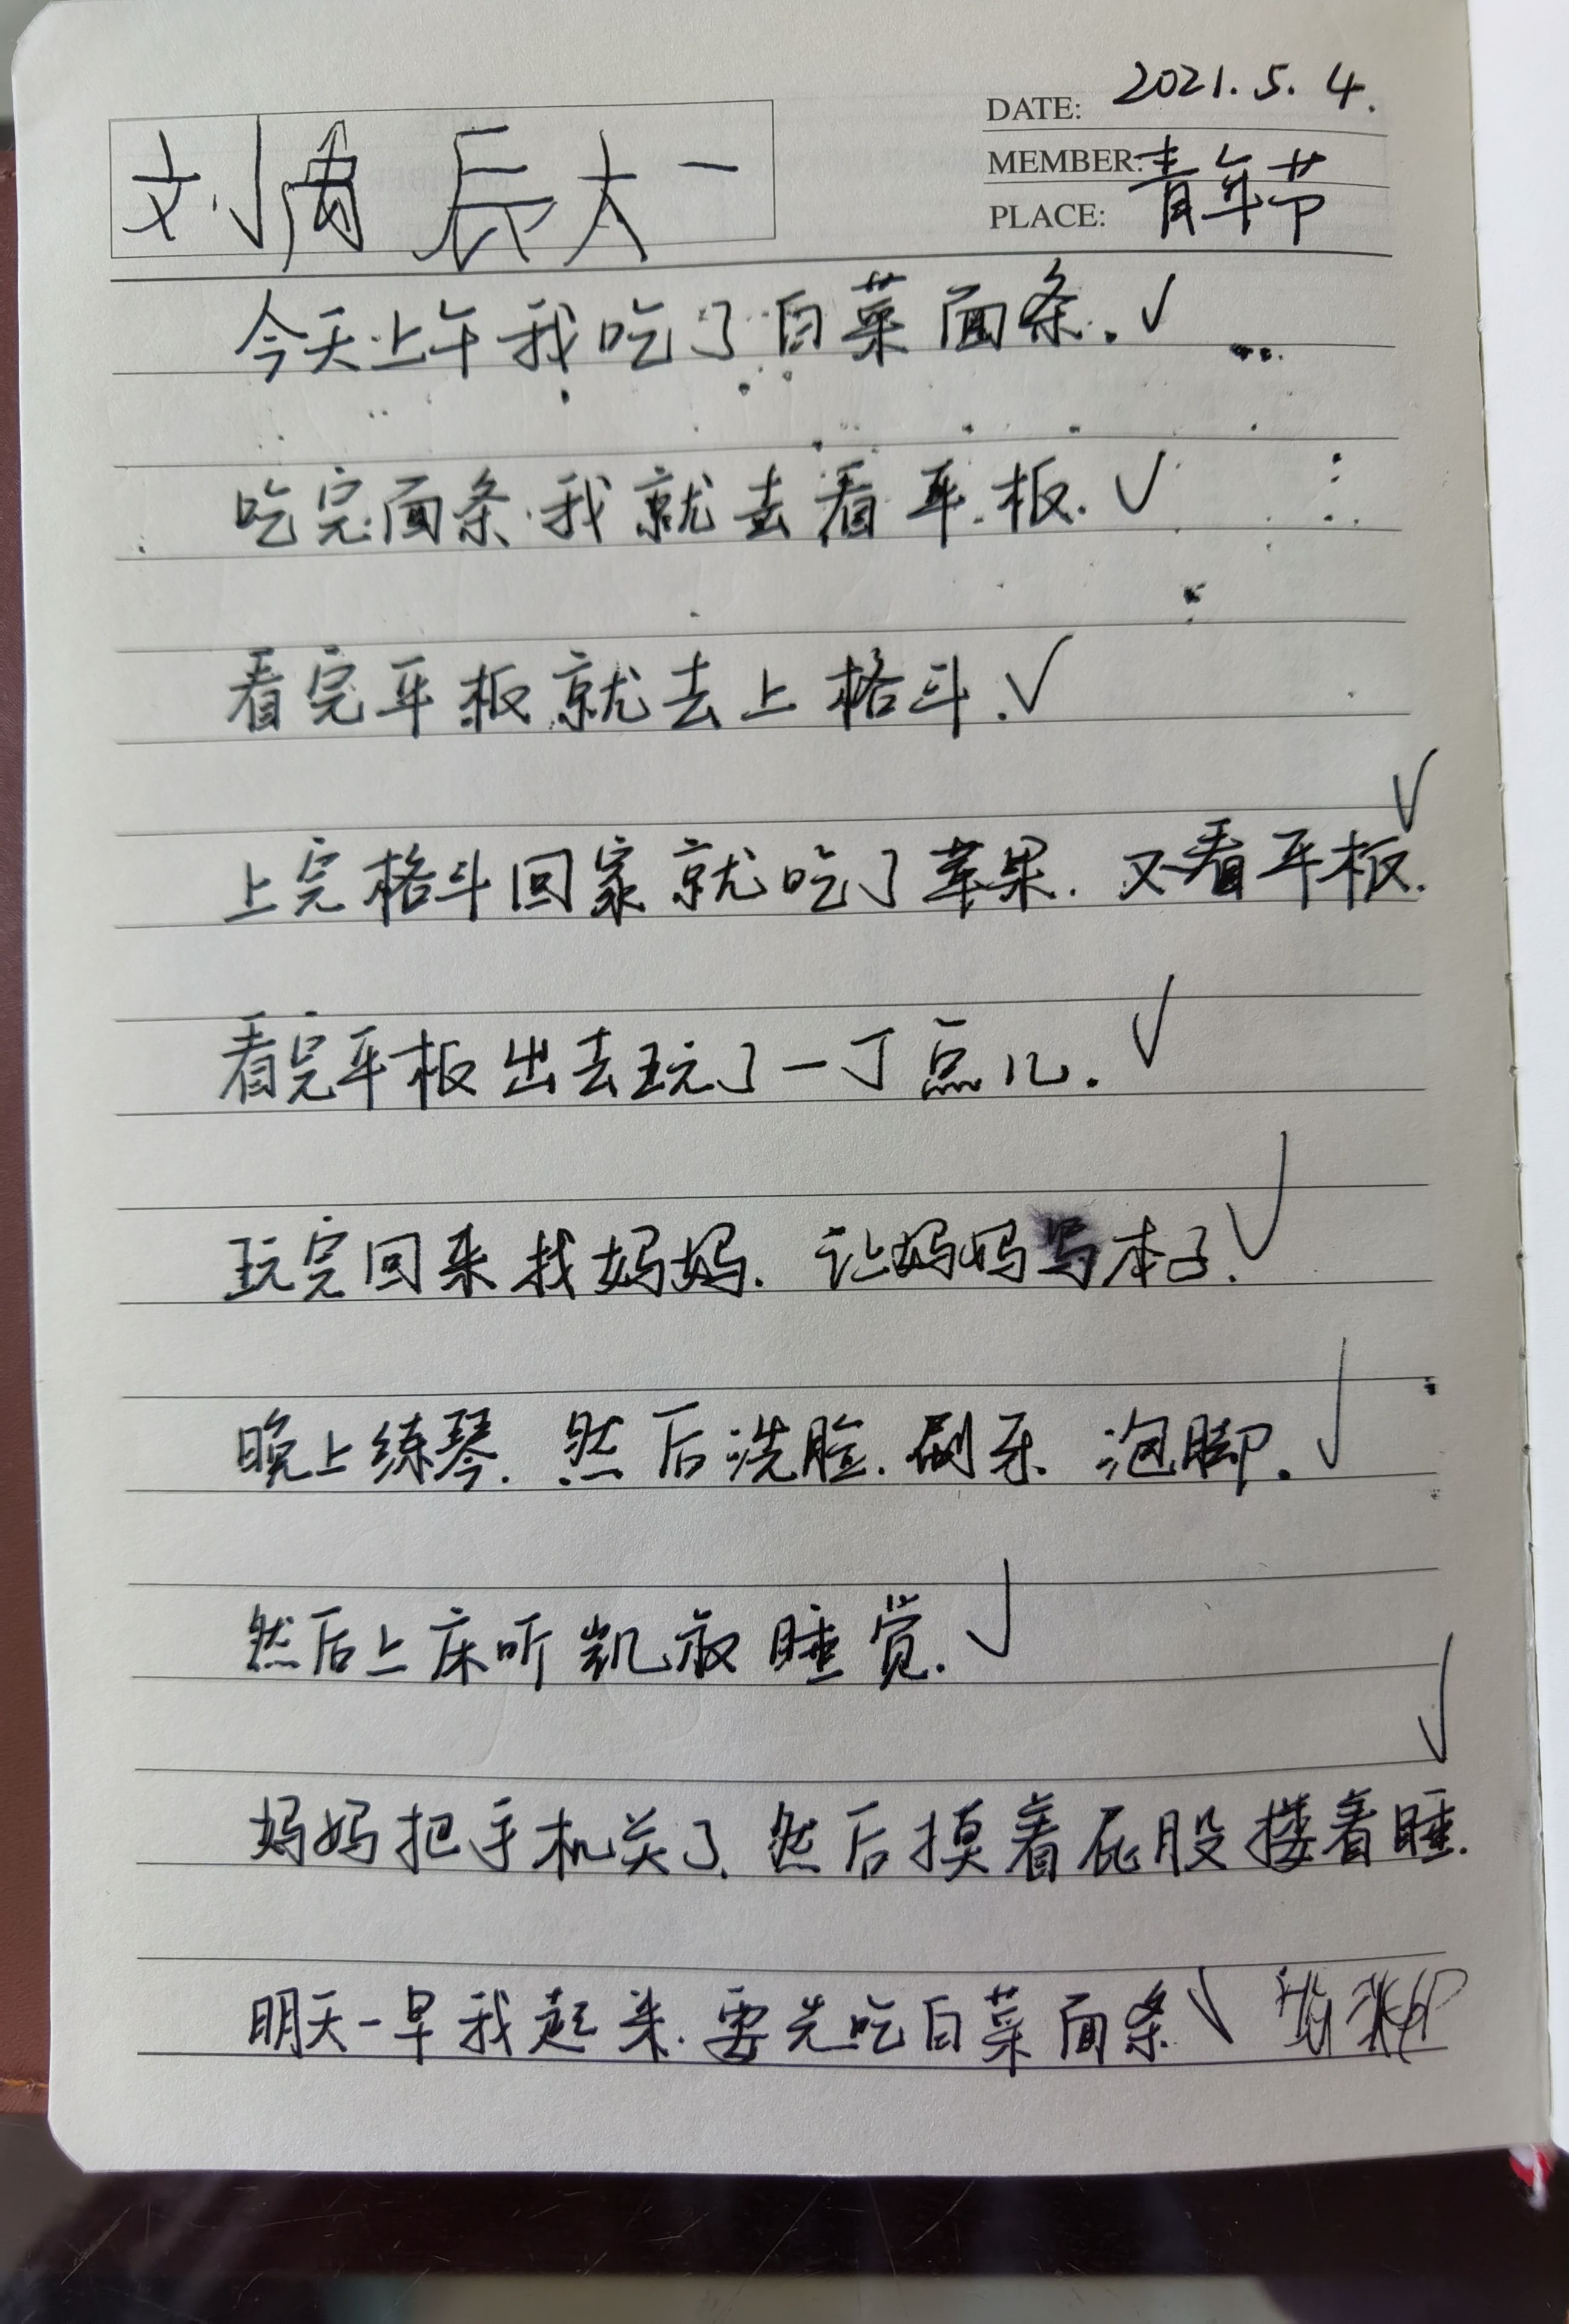 DATE: 2021.5.4.
MEMBER:
PLACE: 青年节
刘禹辰大一
今天上午我吃了白菜面条.✓
吃完面条.我就去看平板.✓
看完平板就去上格斗.✓
上完格斗回家就吃了苹果.又看平板.✓
看完平板出去玩了一丁点儿.✓
玩完回来找妈妈.让妈妈写本子.✓
晚上练琴.然后洗脸.刷牙.泡脚.✓
然后上床听凯叔睡觉.✓
妈妈把手机关了.然后摸着屁股搂着睡.✓
明天一早我起来.要先吃白菜面条✓